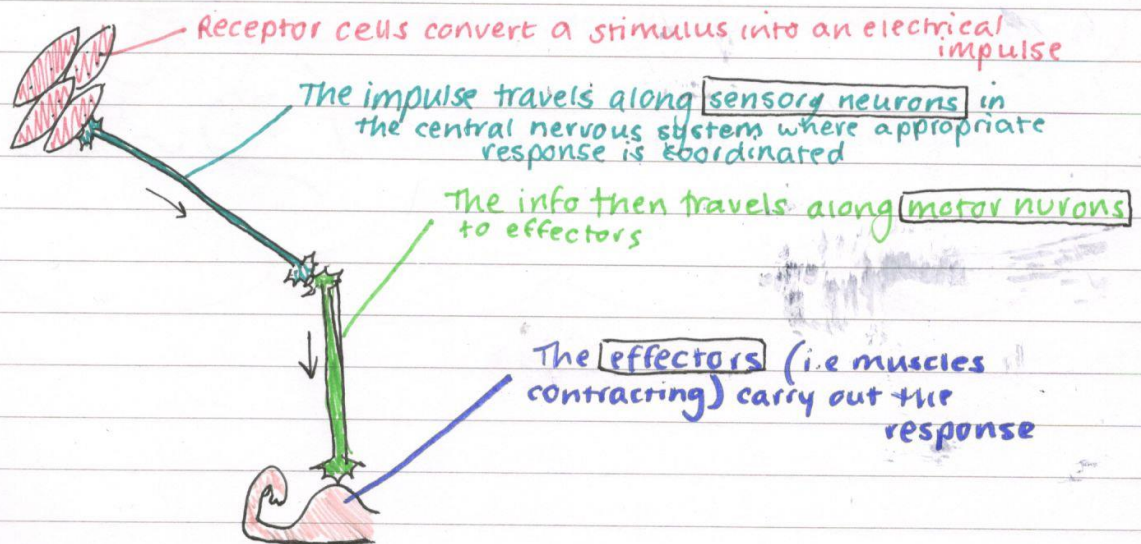 Receptor cells convert a stimulus into an electrical
impulse
The impulse travels along sensory neurons in
the central nervous system where appropriate
response is coordinated
The info then travels along motor nurons
to effectors
The effectors (i.e muscles
contracting) carry out the
response